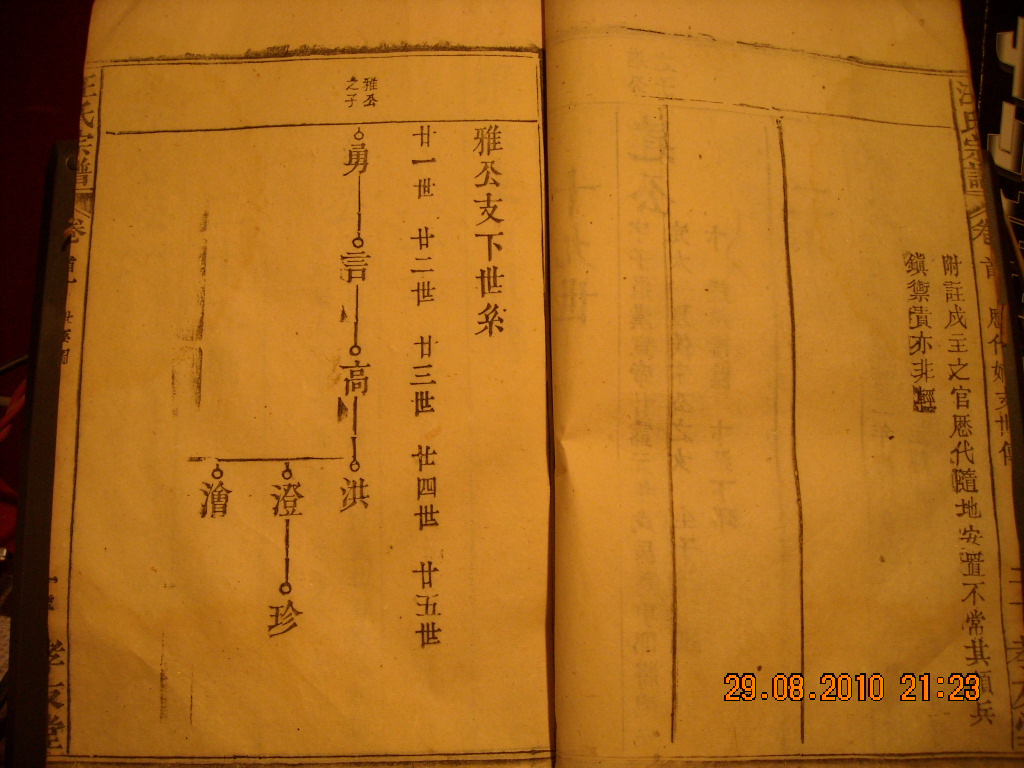 汪氏宗譜
卷首
附註戍王之官歷代隨地安置不常其領兵
鎮禦責亦非輕
雅公支下世系
廿一世 廿二世 廿三世 廿四世 廿五世
雅公
之子
勇
言
高
洪
澄
珍
澮
氏宗譜
卷首
29.08.2010 21:23